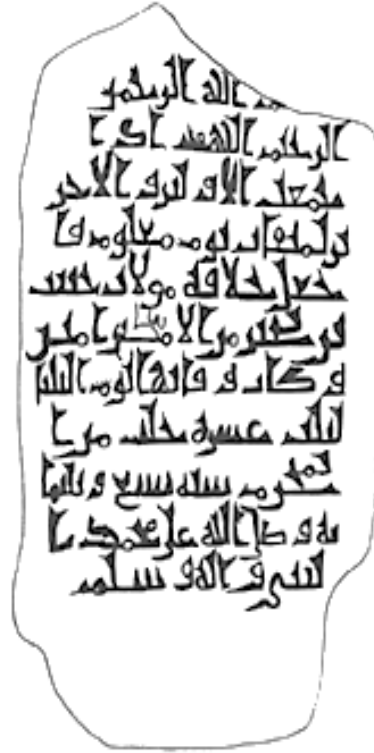 الله الرحمن
الرحيم اللهم اذا
جمعت الاولين والاخر
ين لميقات يوم معلوم فا
جعل خلافة مولاة
بن من الامنين
وكان وفاتها يوم الثلثا
لثلث عشرة خلت من ا
لمحرم سنة تسع وثلثما
ية وصلى الله على محمد ا
لنبي واله وسلم